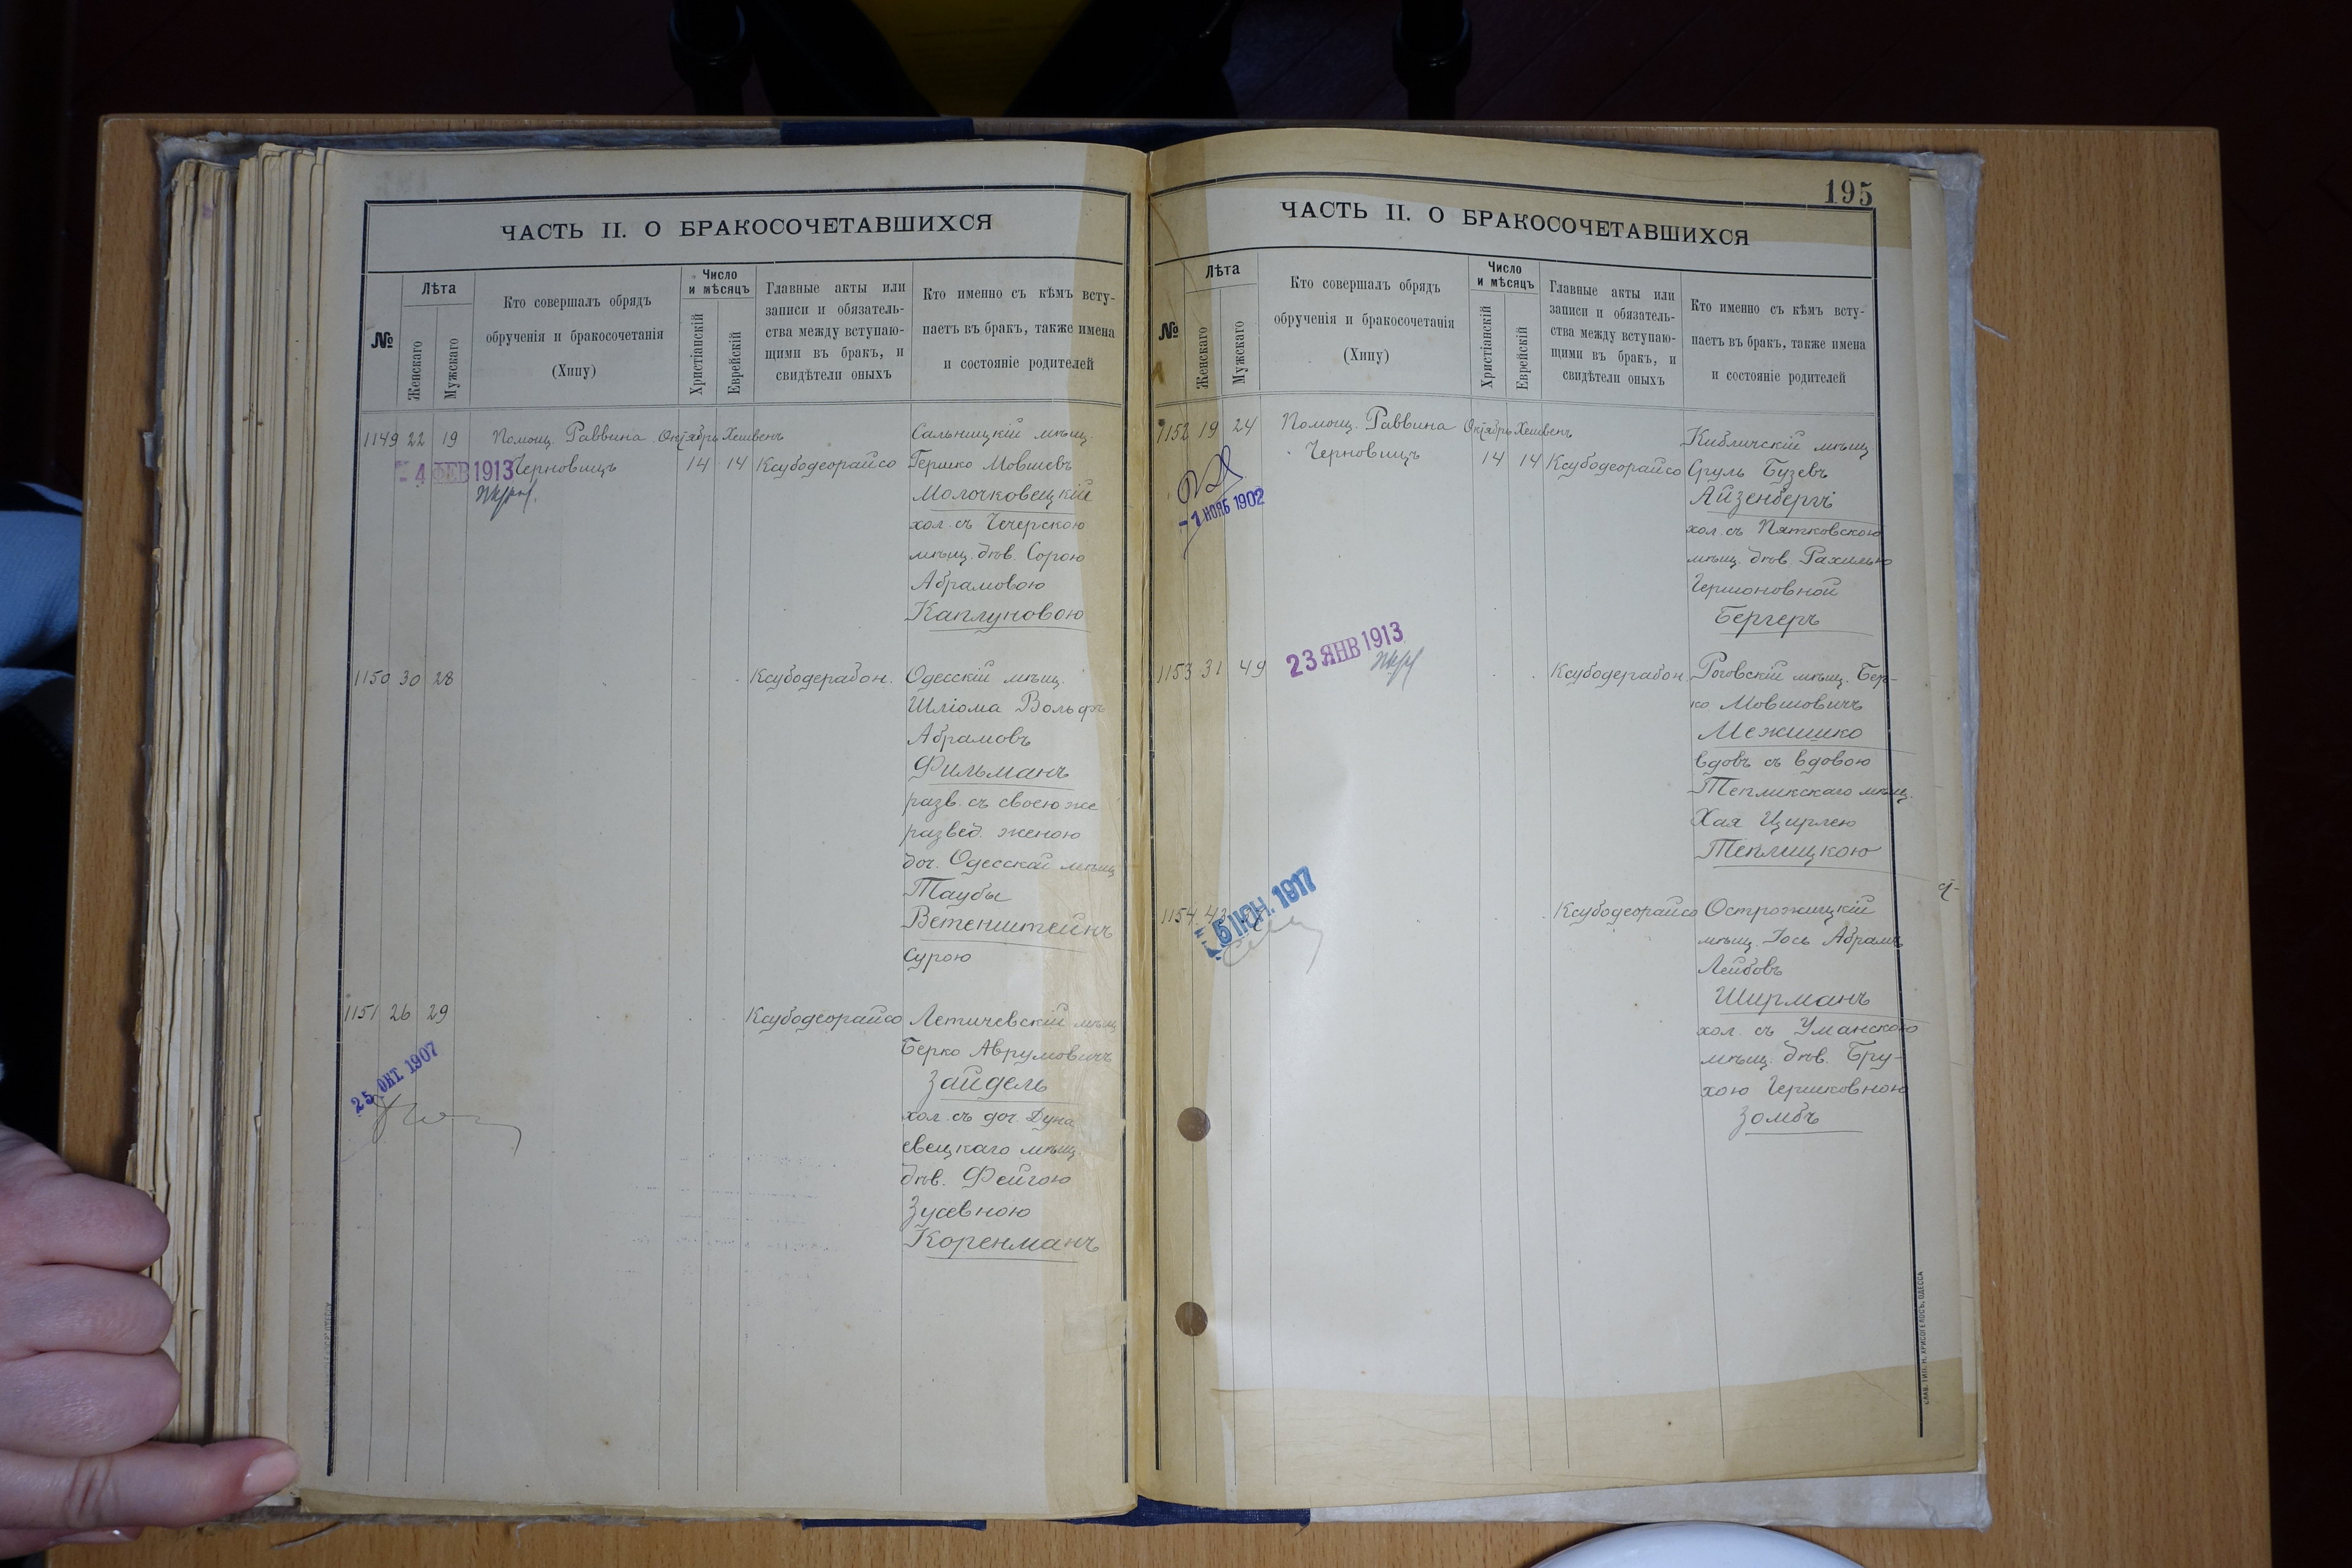 ЧАСТЬ II. О БРАКОСОЧЕТАВШИХСЯ
№
Лѣта
Женскаго
Мужскаго
Кто совершалъ обрядъ
обрученія и бракосочетанія
(Хипу)
Число
и мѣсяцъ
Христіанскій
Еврейскій
Главные акты или
записи и обязатель-
ства между вступаю-
щими въ бракъ, и
свидѣтели оныхъ
Кто именно съ кѣмъ всту-
паетъ въ бракъ, также имена
и состояніе родителей
1149 22 19 Помощ. Раввина Октябрь Хешвенъ Сальницкій мѣщ.
4 ФЕВ 1913 Черновицъ 14 14 Ксубодеорайсо Гершко Мовшевъ
Молочковецкій
хол. съ Чечерскою
мѣщ. дѣв. Сорою
Абрамовою
Каплуновою
1150 30 28 Ксубодерабон. Одесскій мѣщ.
Шліома Вольфъ
Абрамовъ
Фильманъ
разв. съ своею же
развед. женою
доч. Одесской мѣщ
Таубы
Ветенштейнъ
Сурою
1151 26 29 Ксубодеорайсо Летичевскій мѣщ
Берко Аврумовичъ
Зайдель
25 ОКТ. 1907
хол. съ доч. Дуна
евецкаго мѣщ.
дѣв. Фейгою
Зусевною
Коренманъ
195
ЧАСТЬ II. О БРАКОСОЧЕТАВШИХСЯ
№
Лѣта
Женскаго
Мужскаго
Кто совершалъ обрядъ
обрученія и бракосочетанія
(Хипу)
Число
и мѣсяцъ
Христіанскій
Еврейскій
Главные акты или
записи и обязатель-
ства между вступаю-
щими въ бракъ, и
свидѣтели оныхъ
Кто именно съ кѣмъ всту-
паетъ въ бракъ, также имена
и состояніе родителей
1152 19 24 Помощ. Раввина Октябрь Хешвенъ Кибличскій мѣщ
Черновицъ 14 14 Ксубодеорайсо Сруль Бузевъ
Айзенбергъ
-1 НОЯБ 1902
хол. съ Пятковскою
мѣщ. дѣв. Рахилью
Гершоновной
Бергеръ
23 ЯНВ 1913
1153 31 49 Ксубодерабон. Роговскій мѣщ. Бер-
ко Мовшовичъ
Межишко
вдовъ съ вдовою
Тепликскаго мѣщ.
Хая Цирлею
Теплицкою
5 ІЮН. 1917
1154 Ксубодеорайсо Острожицкій
мѣщ. Іось Абрамъ
Лейбовъ
Ширманъ
хол. съ Уманскою
мѣщ. дѣв. Бру-
хою Гершковною
Зомбъ
СЛАВ. ТИП. Н. ХРИСОГЕЛОСЪ, ОДЕССА